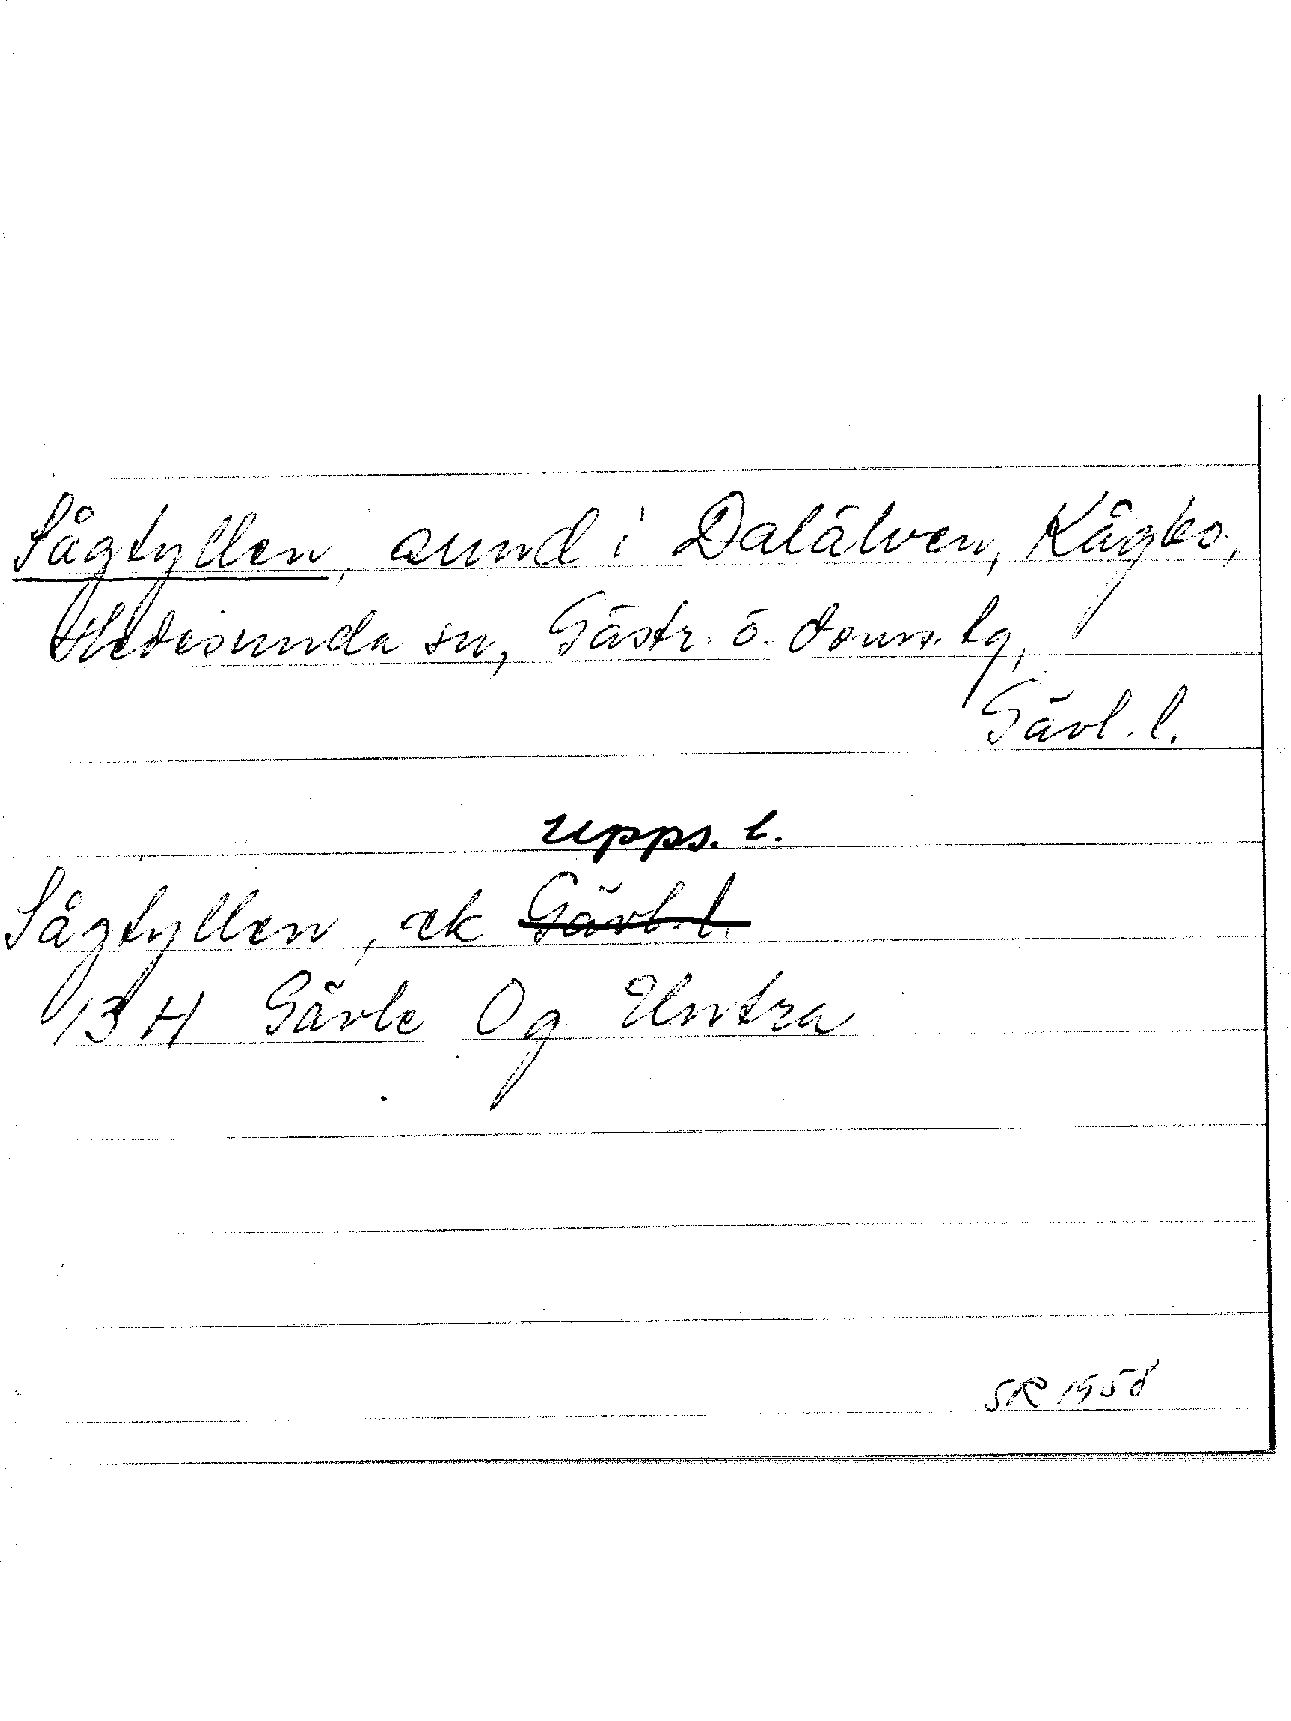 Sågtyllen, sund i Dalälven, Kågbo,
Hedesunda sn, Gästr. ö. doms.lg,
Gävl. l.
Upps. l.
Sågtyllen, ek Gävl. l.
13 H Gävle 0 g Untra
SR 1958